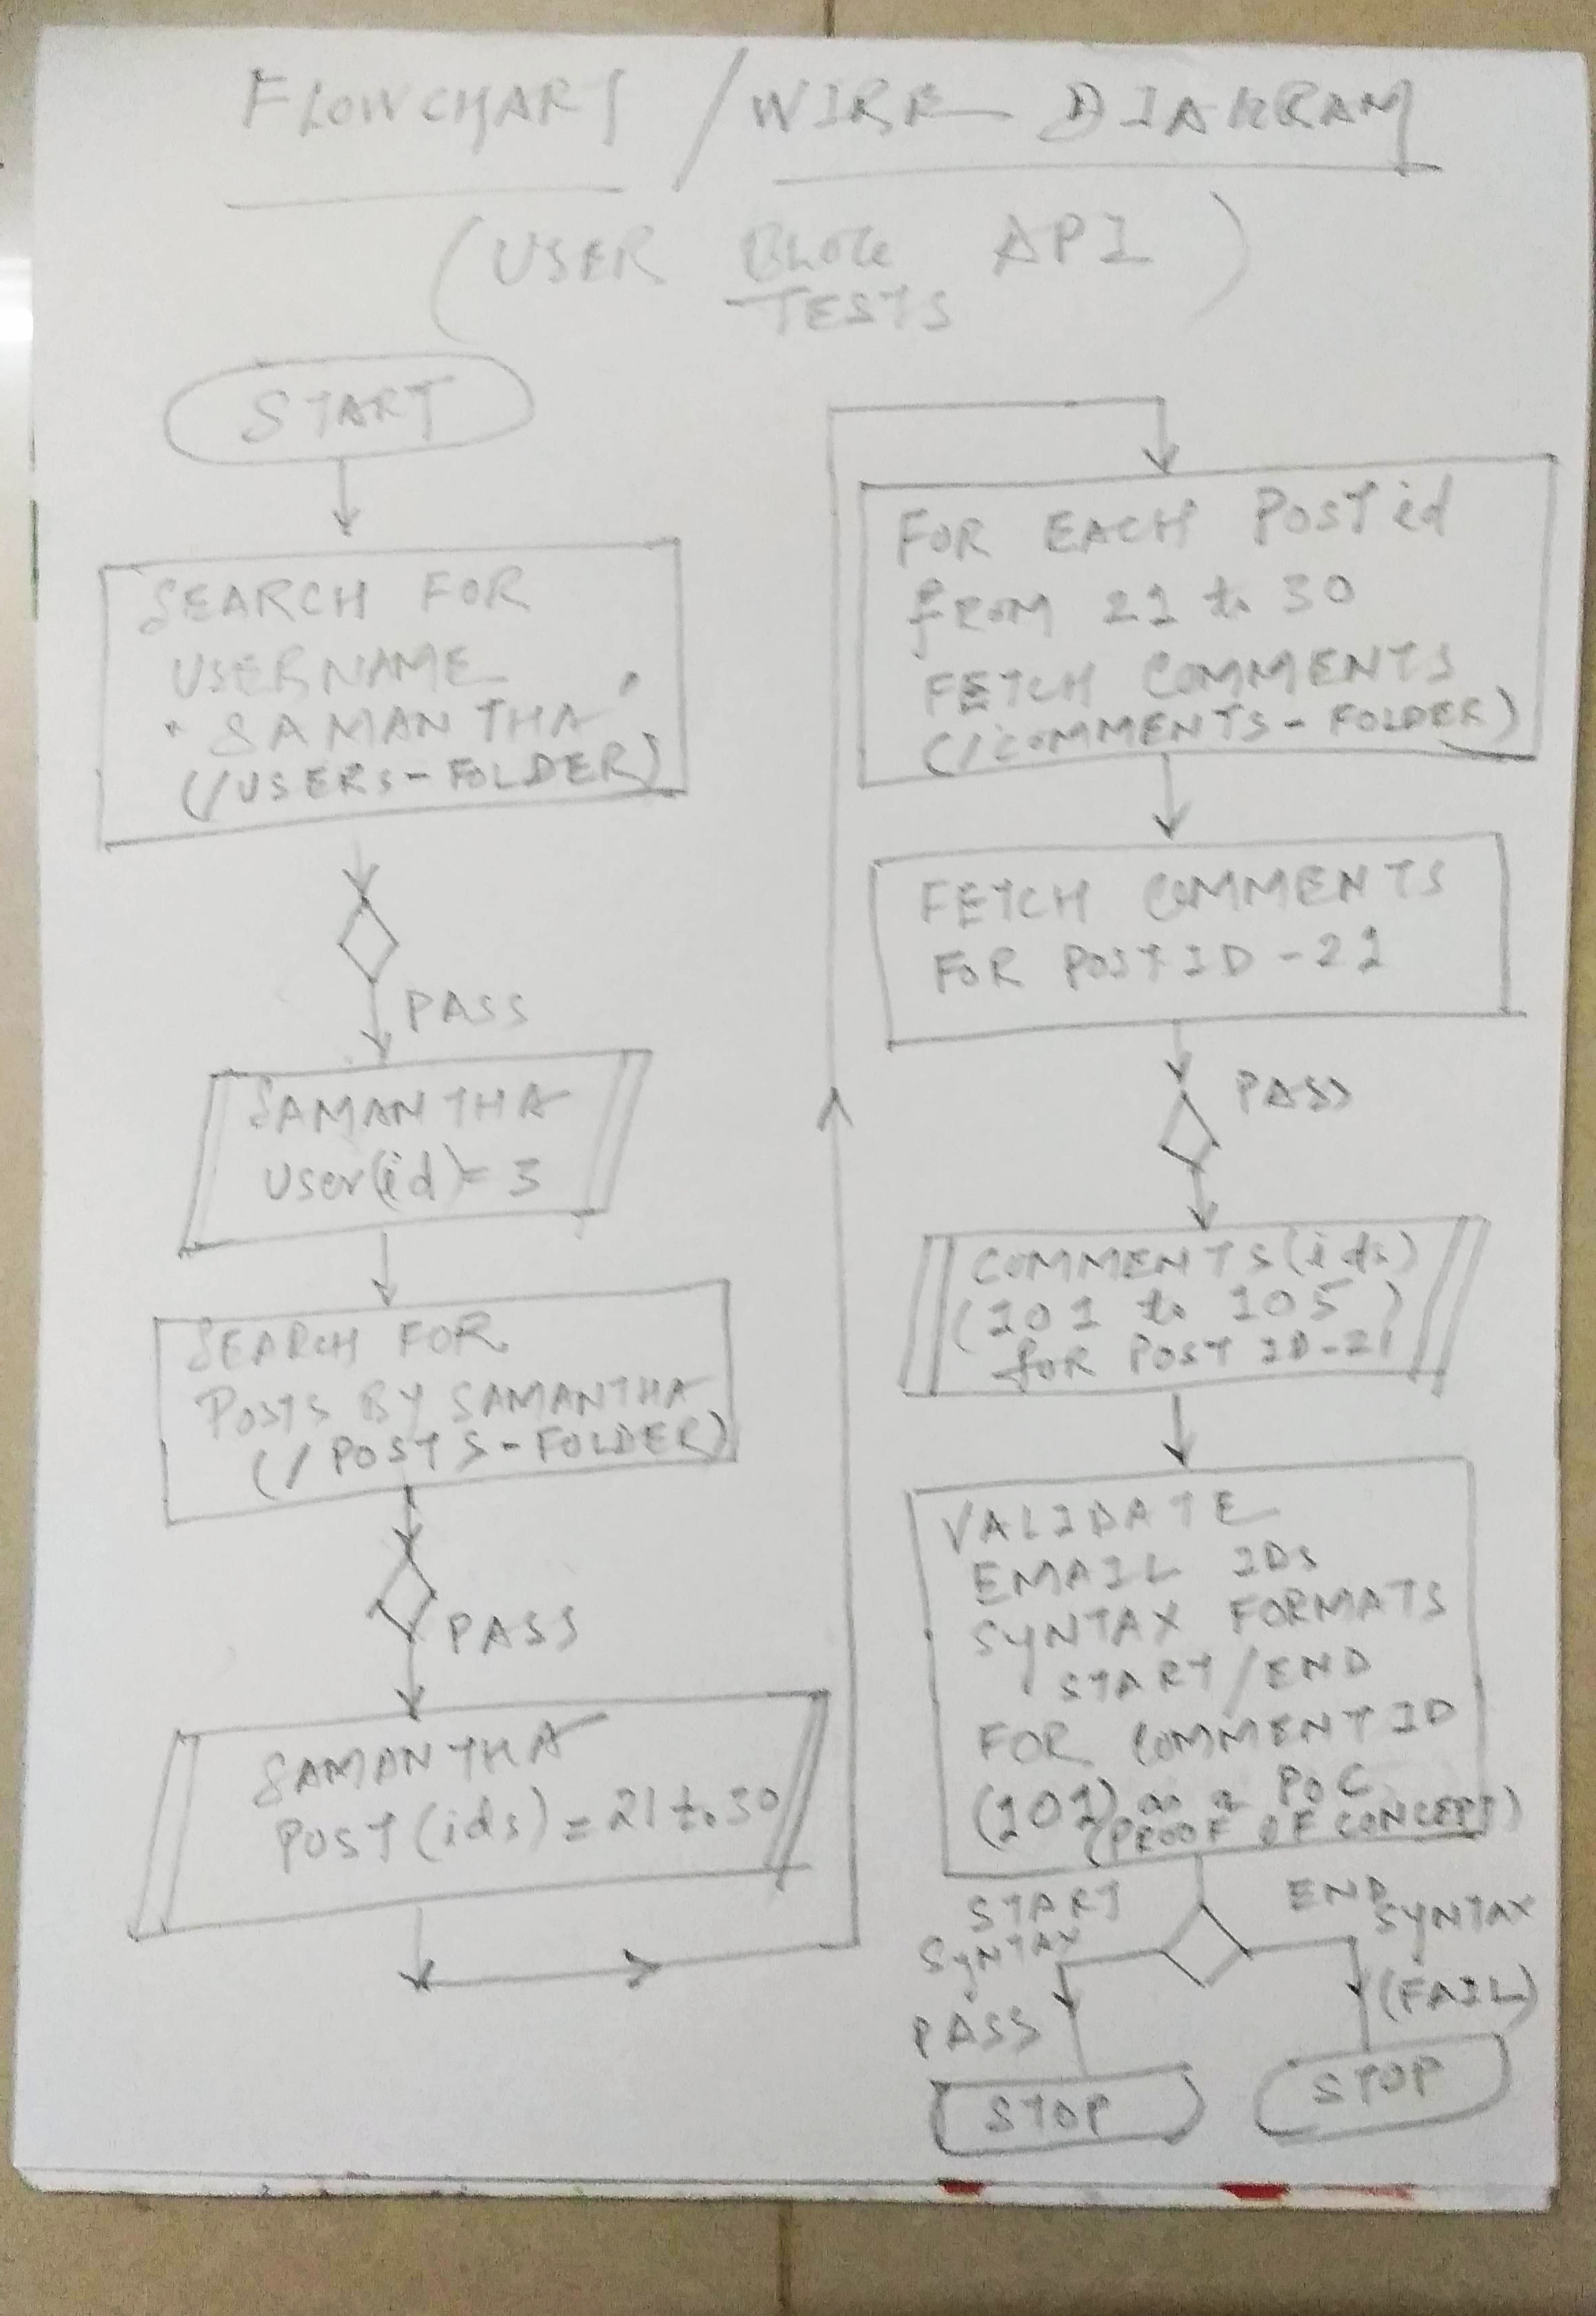 FLOWCHART / WIRE DIAGRAM
(USER BLOG API)
TESTS
START
SEARCH FOR
USERNAME
"SAMANTHA"
(/USERS-FOLDER)
PASS
SAMANTHA
User(id)=3
SEARCH FOR
POSTS BY SAMANTHA
(/POSTS-FOLDER)
PASS
SAMANTHA
POST(ids)=21 to 30
FOR EACH POST id
from 21 to 30
FETCH COMMENTS
(/COMMENTS-FOLDER)
FETCH COMMENTS
FOR POST ID-21
PASS
COMMENTS(ids)
(101 to 105)
for POST ID-21
VALIDATE
EMAIL IDs
SYNTAX FORMATS
START/END
FOR COMMENT ID
(101) as a POC
(PROOF OF CONCEPT)
START
SYNTAX
PASS
END
SYNTAX
(FAIL)
STOP
STOP